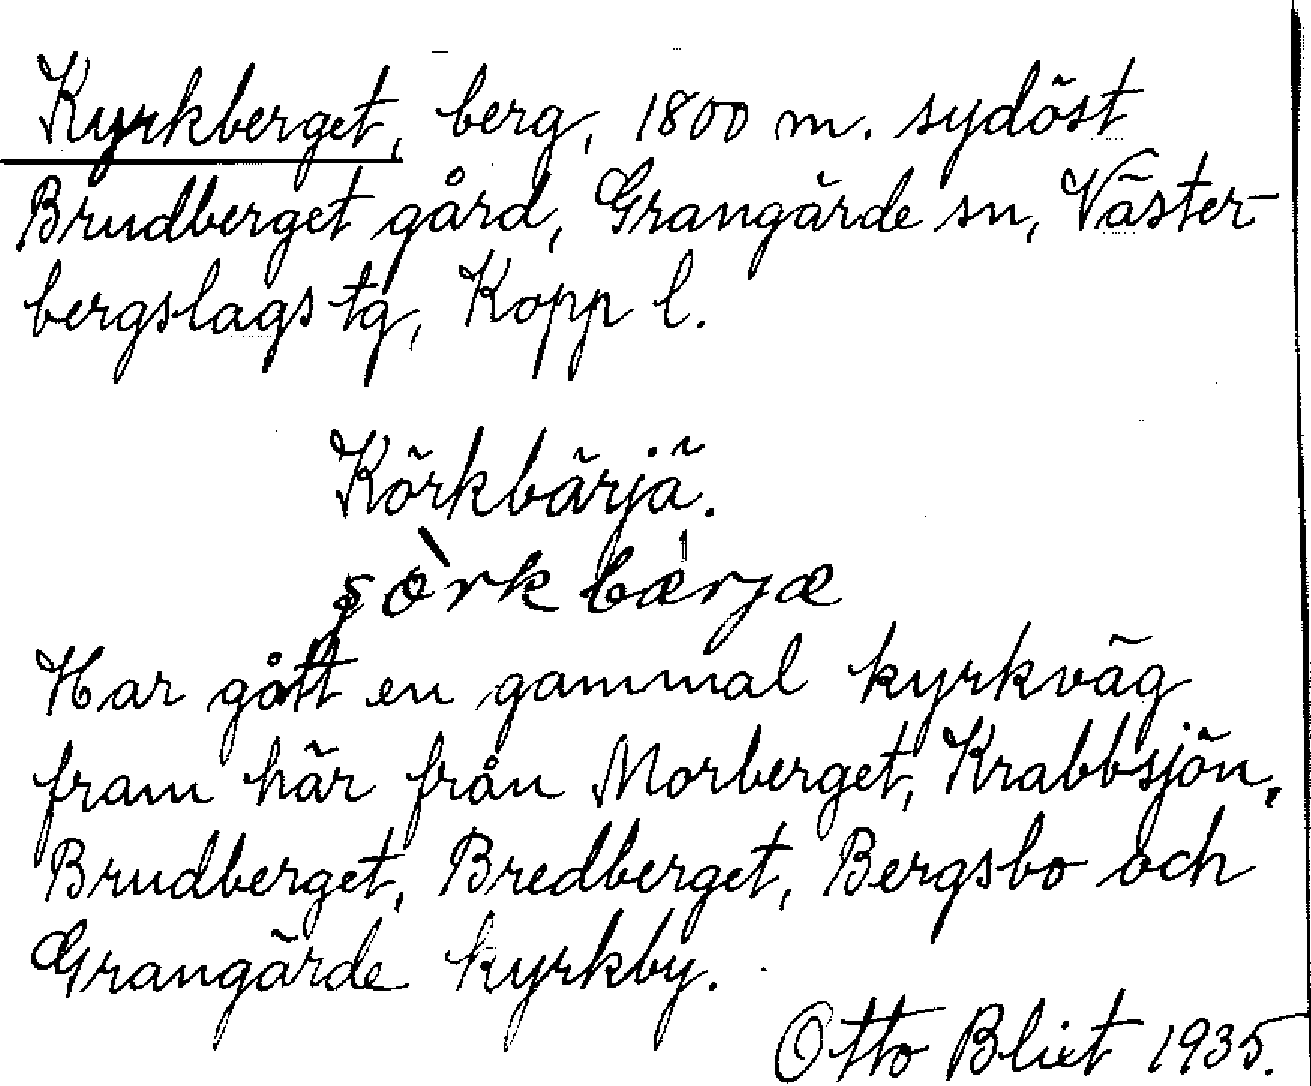 Kyrkberget, berg, 1800 m. sydöst
Brudberget gård, Grangärde sn, Väster-
bergslags tg, Kopp l.
Körkbärjä.
şòrkbærjæ
Har gått en gammal kyrkväg
fram här från Morberget, Krabbsjön,
Brudberget, Bredberget, Bergsbo och
Grangärde kyrkby.
Otto Bliet 1935.